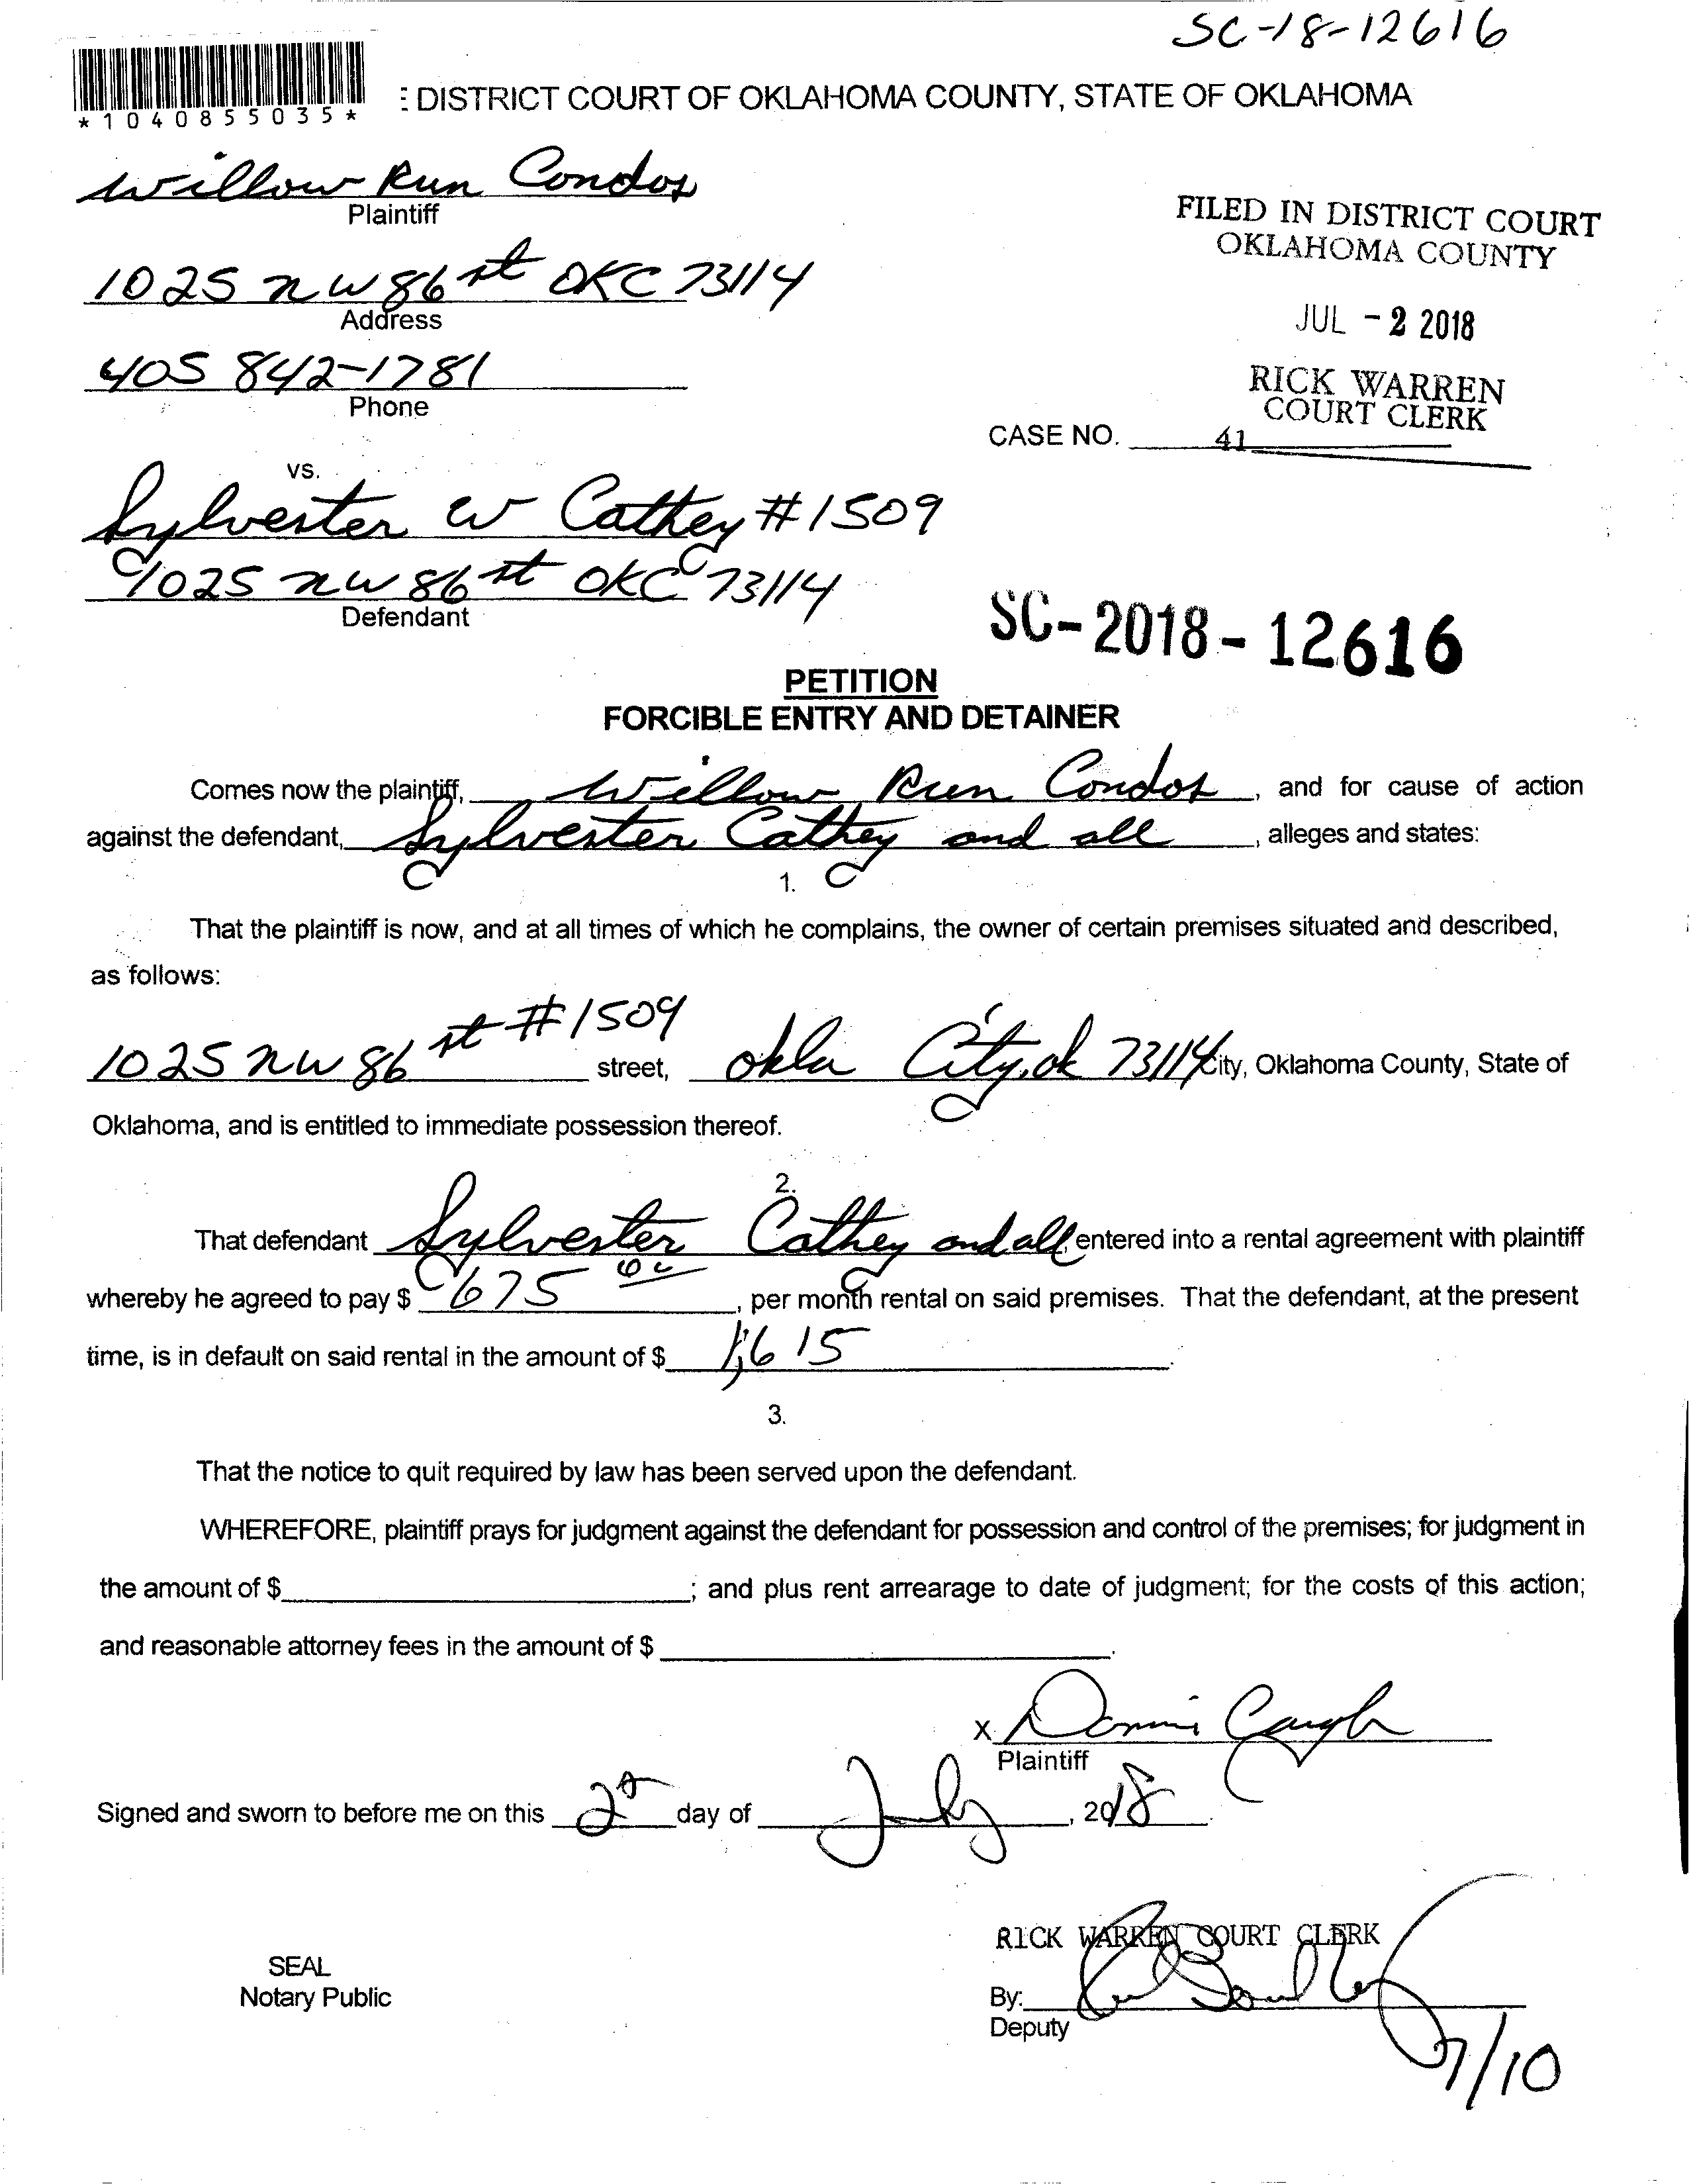 SC-18-12616
*1040855035*
: DISTRICT COURT OF OKLAHOMA COUNTY, STATE OF OKLAHOMA
Willow Run Condos
Plaintiff
FILED IN DISTRICT COURT
OKLAHOMA COUNTY
1025 NW 86 st OKC 73114
Address
JUL - 2 2018
405 842-1781
Phone
RICK WARREN
COURT CLERK
CASE NO. 41
vs.
Sylvester W Cathey #1509
1025 NW 86 st OKC 73114
Defendant
SC-2018-12616
PETITION
FORCIBLE ENTRY AND DETAINER
Comes now the plaintiff, Willow Run Condos, and for cause of action
against the defendant, Sylvester Cathey and all, alleges and states:
1.
That the plaintiff is now, and at all times of which he complains, the owner of certain premises situated and described,
as follows:
1025 NW 86 st #1509 street, Okla City, ok 73114 City, Oklahoma County, State of
Oklahoma, and is entitled to immediate possession thereof.
2.
That defendant Sylvester Cathey and all entered into a rental agreement with plaintiff
whereby he agreed to pay $ 675 00, per month rental on said premises. That the defendant, at the present
time, is in default on said rental in the amount of $ 1,615.
3.
That the notice to quit required by law has been served upon the defendant.
WHEREFORE, plaintiff prays for judgment against the defendant for possession and control of the premises; for judgment in
the amount of $ ; and plus rent arrearage to date of judgment; for the costs of this action;
and reasonable attorney fees in the amount of $ .
X
Plaintiff
Signed and sworn to before me on this 2 day of July, 2018.
RICK WARREN COURT CLERK
SEAL
Notary Public
By:
Deputy
7/10